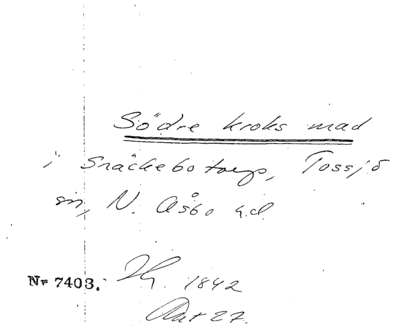 Södre kroks mad
i Snäckebotorp, Tossjö
sn, N. Åsbo h.d.
Nr 7403. 1842
27.